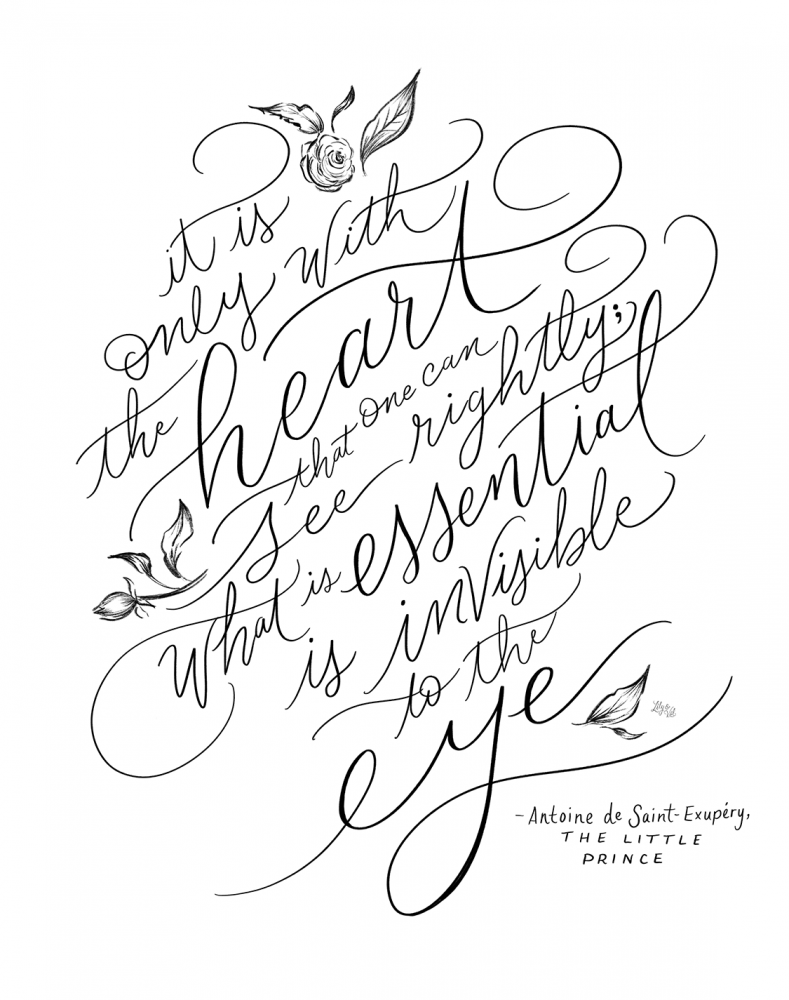 it is
only with
the heart
that one can
see rightly;
What is essential
is invisible
to the
eye
– Antoine de Saint-Exupéry,
THE LITTLE
PRINCE